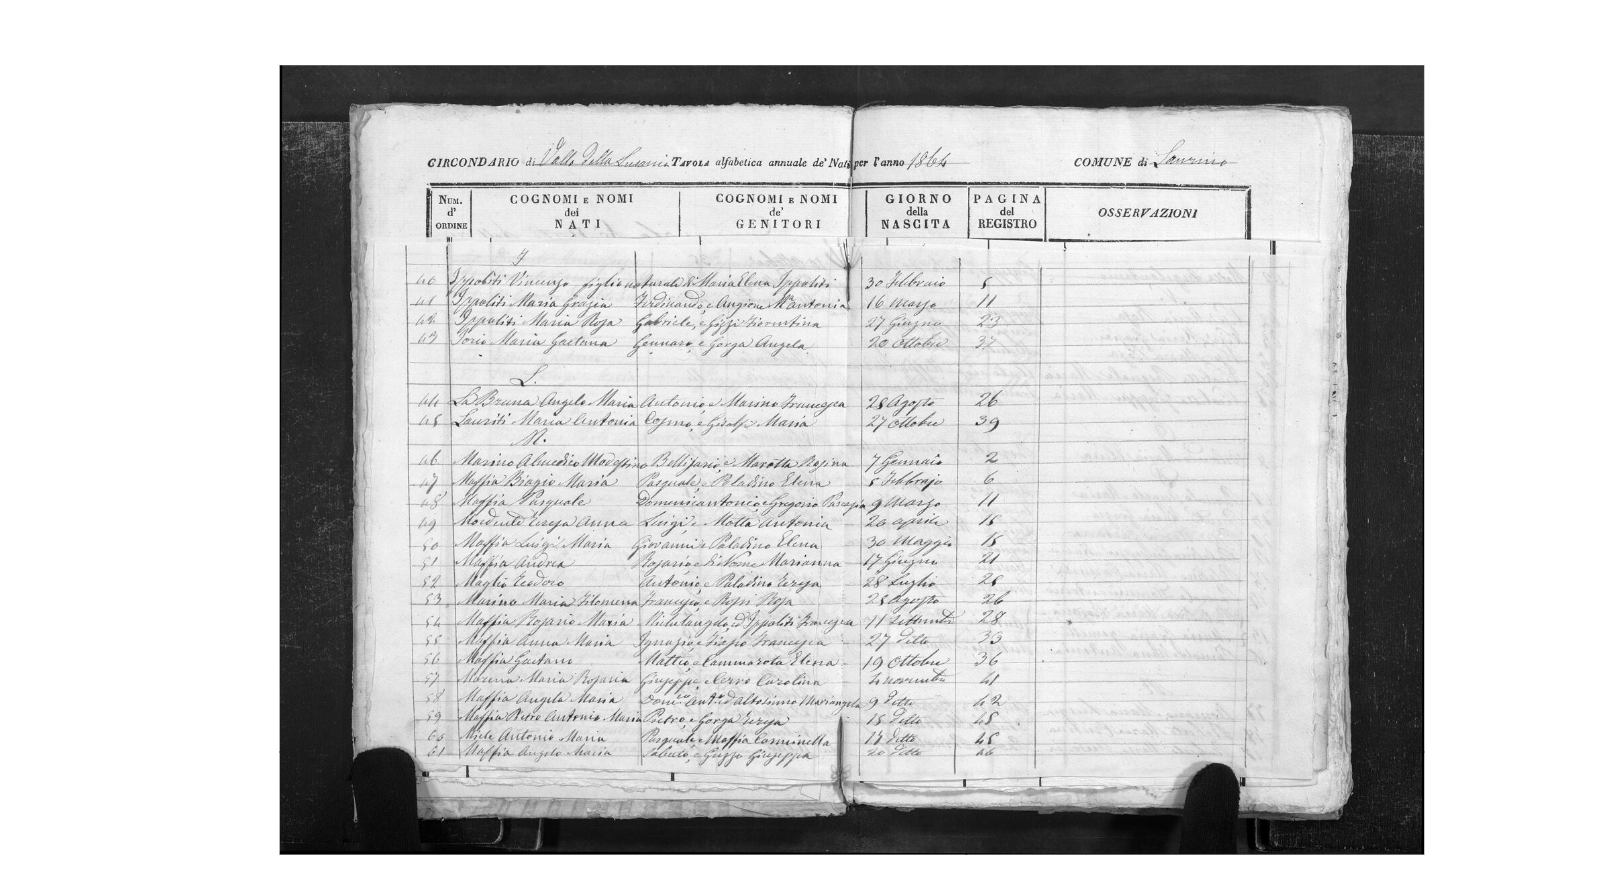 CIRCONDARIO di Valle della Lucania TAVOLA alfabetica annuale de' Nati per l'anno 1864 COMUNE di Laurino
NUM. d' ORDINE COGNOMI E NOMI dei NATI COGNOMI E NOMI de' GENITORI GIORNO della NASCITA PAGINA del REGISTRO OSSERVAZIONI
I
40 Ippoliti Vincenzo figlio naturale di Maria Elena Ippoliti 30 Febbraio 5
41 Ippoliti Maria Grazia Ferdinando, e Angione Ma Antonia 16 Marzo 11
42 Ippoliti Maria Rosa Gabriele, e Fiorentina 27 Giugno 23
43 Iorio Maria Gaetana Gennaro, e Gorga Angela 20 Ottobre 37
L.
44 La Bruna Angelo Maria Antonio, e Marino Francesca 28 Agosto 26
45 Lauriti Maria Antonia Cosmo, e Maria 27 Ottobre 39
M.
46 Marino Modestino Bellisario, e Marotta Regina 7 Gennaio 2
47 Maffia Biagio Maria Pasquale, e Paladino Elena 5 Febbrajo 6
48 Maffia Pasquale Domenicantonio, e Gregorio 9 Marzo 11
49 Mordente Teresa Anna Luigi, e Motta Antonia 20 aprile 15
50 Maffia Luigi Maria Giovanni, e Paladino Elena 30 Maggio 18
51 Maffia Andrea Rosario, e Marianna 17 Giugno 21
52 Maglio Teodoro Antonio, e Paladino Teresa 28 Luglio 25
53 Marino Maria Filomena Francesco, e Rossi Rosa 28 Agosto 26
54 Maffia Rosario Maria Michelangelo, ed Ippoliti Francesca 11 Settembre 28
55 Maffia Anna Maria Ignazio, e Francesca 27 Detto 33
56 Maffia Gaetano Matteo, e Cammarota Elena 19 Ottobre 36
57 Maria Rosaria Giuseppe, e Cerro Carolina 4 novembre 41
58 Maffia Angela Maria Domco Anto, ed Altosinno Mariangela 9 Detto 42
59 Maffia Pietro Antonio Maria Pietro, e Gorga Teresa 15 Detto 45
60 Miele Antonio Maria Pasquale, e Maffia Carminella 17 Detto 45
61 Maffia Angelo Maria Sabato, e Giuseppa 20 Detto 46